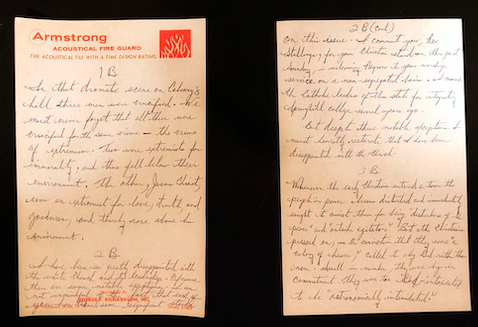 Armstrong
ACOUSTICAL FIRE GUARD
THE ACOUSTICAL TILE WITH A TIME DESIGN RATING
1 B
In that dramatic scene on Calvary's
hill three men were crucified. We
must never forget that all three were
crucified for the same crime - the crime
of extremism. Two were extremists for
immorality, and thus fell below their
environment. The other, Jesus Christ,
was an extremist for love, truth and
goodness, and thereby rose above his
environment.
2 B
I have been so greatly disappointed with
the white church and its leadership. Of course
there are some notable exceptions. I am
not unmindful of the fact that each of
you has taken some significant stands
GEORGE F. RICHARDSON, INC.
2 B (cont)
on this issue. I commend you, Rev
Stallings, for your Christian stand on this past
Sunday, in welcoming Negroes to your worship
service on a non-segregated basis. I commend
the Catholic leaders of this state for integrating
Springhill college several years ago.
But despite these notable exceptions I
must honestly reiterate that I have been
disappointed with the church.
3 B
Whenever the early Christians entered a town the
people in power became disturbed and immediately
sought to convict them for being "disturbers of the
peace" and "outside agitators." But the Christians
pressed on, in the conviction that they were "a
colony of heaven," called to obey God
man. Small in number, they were big in
commitment. They were too God-intoxicated
to be "astronomically intimidated."